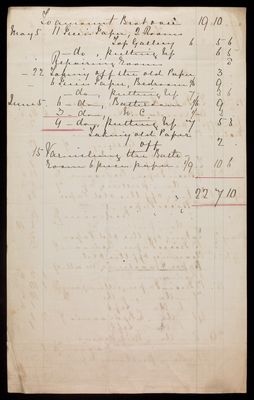 To amount Brot over 19 10
May 5 11 Piece Paper, 2 Rooms
Top Gallery 6 5 6
9 - do, putting up 6 6
Repairing Rooms 3
- 22 Taking off the old Paper 3
- 6 Piece Paper, Bedroom
- do, putting up 7 3 6
June 5 6 - do, Bathroom 9
3 - do, W.C.
9 - do, putting up 7 5 3
Taking old Paper
off 2
15 Varnishing the Bath
Room 6 piece paper 1/9 10 6
22 7 10